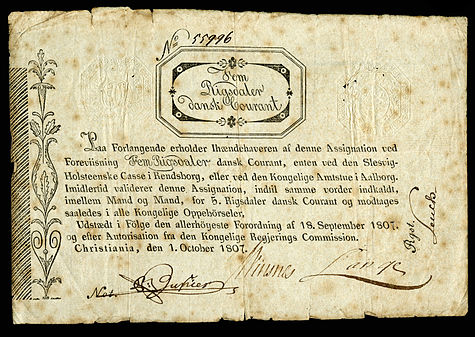 No 55996
Fem
Rigsdaler
dansk Courant
Paa Forlangende erholder Ihændehaveren af denne Assignation ved
Foreviisning Fem Rigsdaler dansk Courant, enten ved den Slesvig-
Holsteenske Casse i Rendsborg, eller ved den Kongelige Amtstue i Aalborg.
Imidlertid validerer denne Assignation, indtil samme vorder indkaldt,
imellem Mand og Mand, for 5. Rigsdaler dansk Courant og modtages
saaledes i alle Kongelige Oppebörseler.
Udstædt i Følge den allerhöieste Forordning af 18. September 1807.
og efter Autorisation fra den Kongelige Regjerings Commission.
Christiania, den 1. October 1807.
Rgst.
Not.